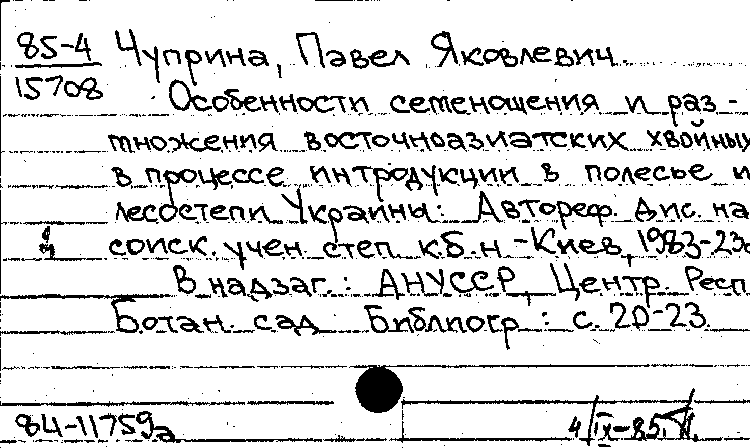 85-4 Чуприна, Павел Яковлевич.
15708 Особенности семеношения и раз-
множения восточноазиатских хвойных
в процессе интродукции в полесье и
лесостепи Украины: Автореф. дис. на
соиск. учен. степ. к.б.н. -Киев, 1983-23с
В надзаг.: АНУССР, Центр. Респ
Ботан. сад. Библиогр.: с. 20-23.
84-11759а
4/IX-85г.